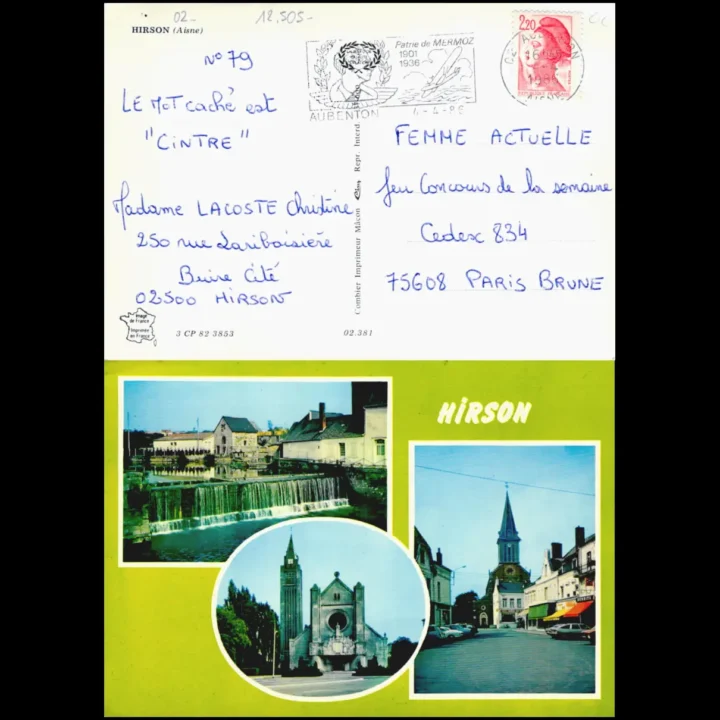 02-
12.505-
HIRSON (Aisne)
N° 79
LE MOT caché est
"CINTRE"
Madame LACOSTE Christine
250 rue Lariboisière
Buire Cité
02500 HIRSON
Image de France
Imprimée en France
3 CP 82 3853
02.381
Combier Imprimeur Mâcon Repr. Interd.
Patrie de MERMOZ
1901
1936
AUBENTON
4-4-86
2,20
FEMME ACTUELLE
Jeu Concours de la semaine
Cedex 834
75608 PARIS BRUNE
HIRSON